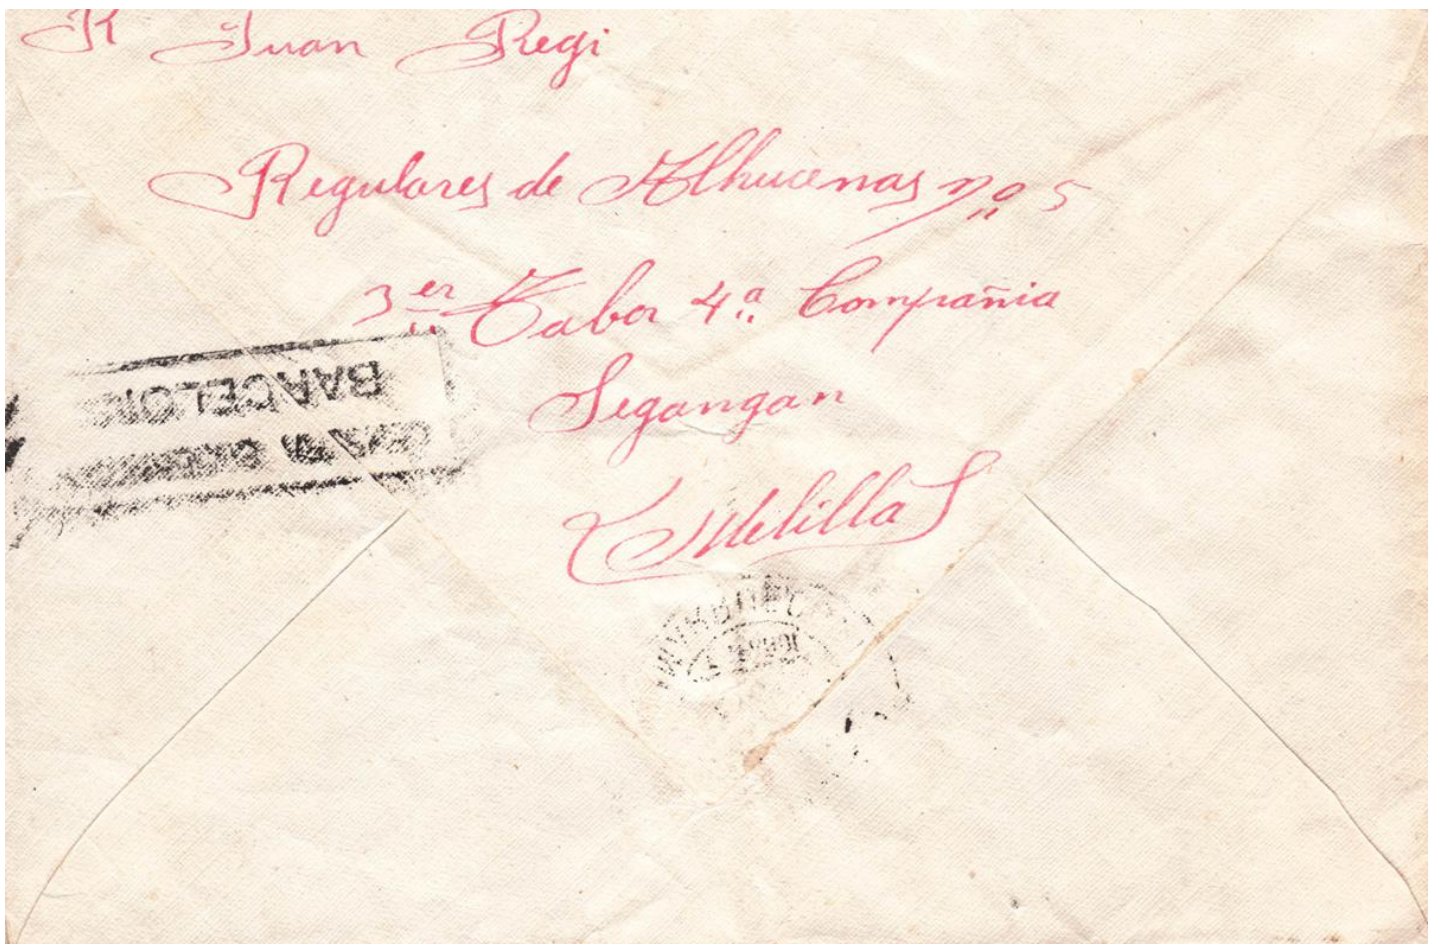 R Juan Regi
Regulares de Alhucenas nº 5
3er Tabor 4ª Compañia
Segangan
(Melilla)
BARCELON